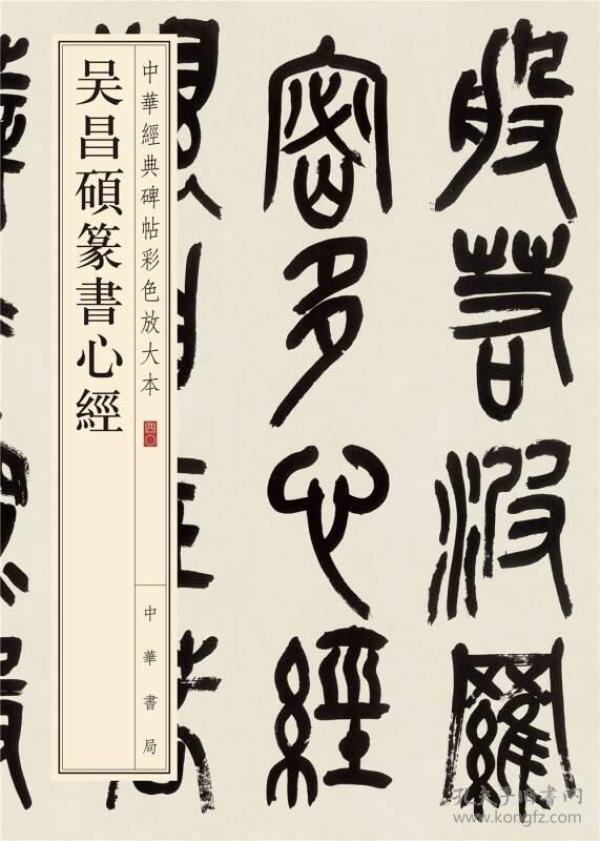 般若波羅
蜜多心經
吴昌碩篆書心經
中華經典碑帖彩色放大本
四〇
中華書局
孔夫子旧書网
www.kongfz.com